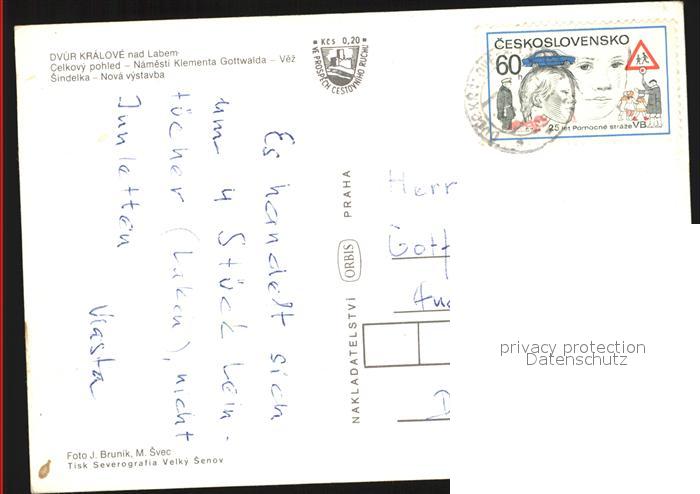 DVŮR KRÁLOVÉ nad Labem
Celkový pohled – Náměstí Klementa Gottwalda – Věž
Šindelka – Nová výstavba
Kčs 0,20
VE PROSPĚCH CESTOVNÍHO RUCHU
ČESKOSLOVENSKO
60 h
25 let Pomocné stráže VB
Es handelt sich
um 4 Stück Lein-
tücher (Laken), nicht
Vlasta
NAKLADATELSTVÍ ORBIS PRAHA
Herr
privacy protection
Datenschutz
Foto J. Bruník, M. Švec
Tisk Severografia Velký Šenov